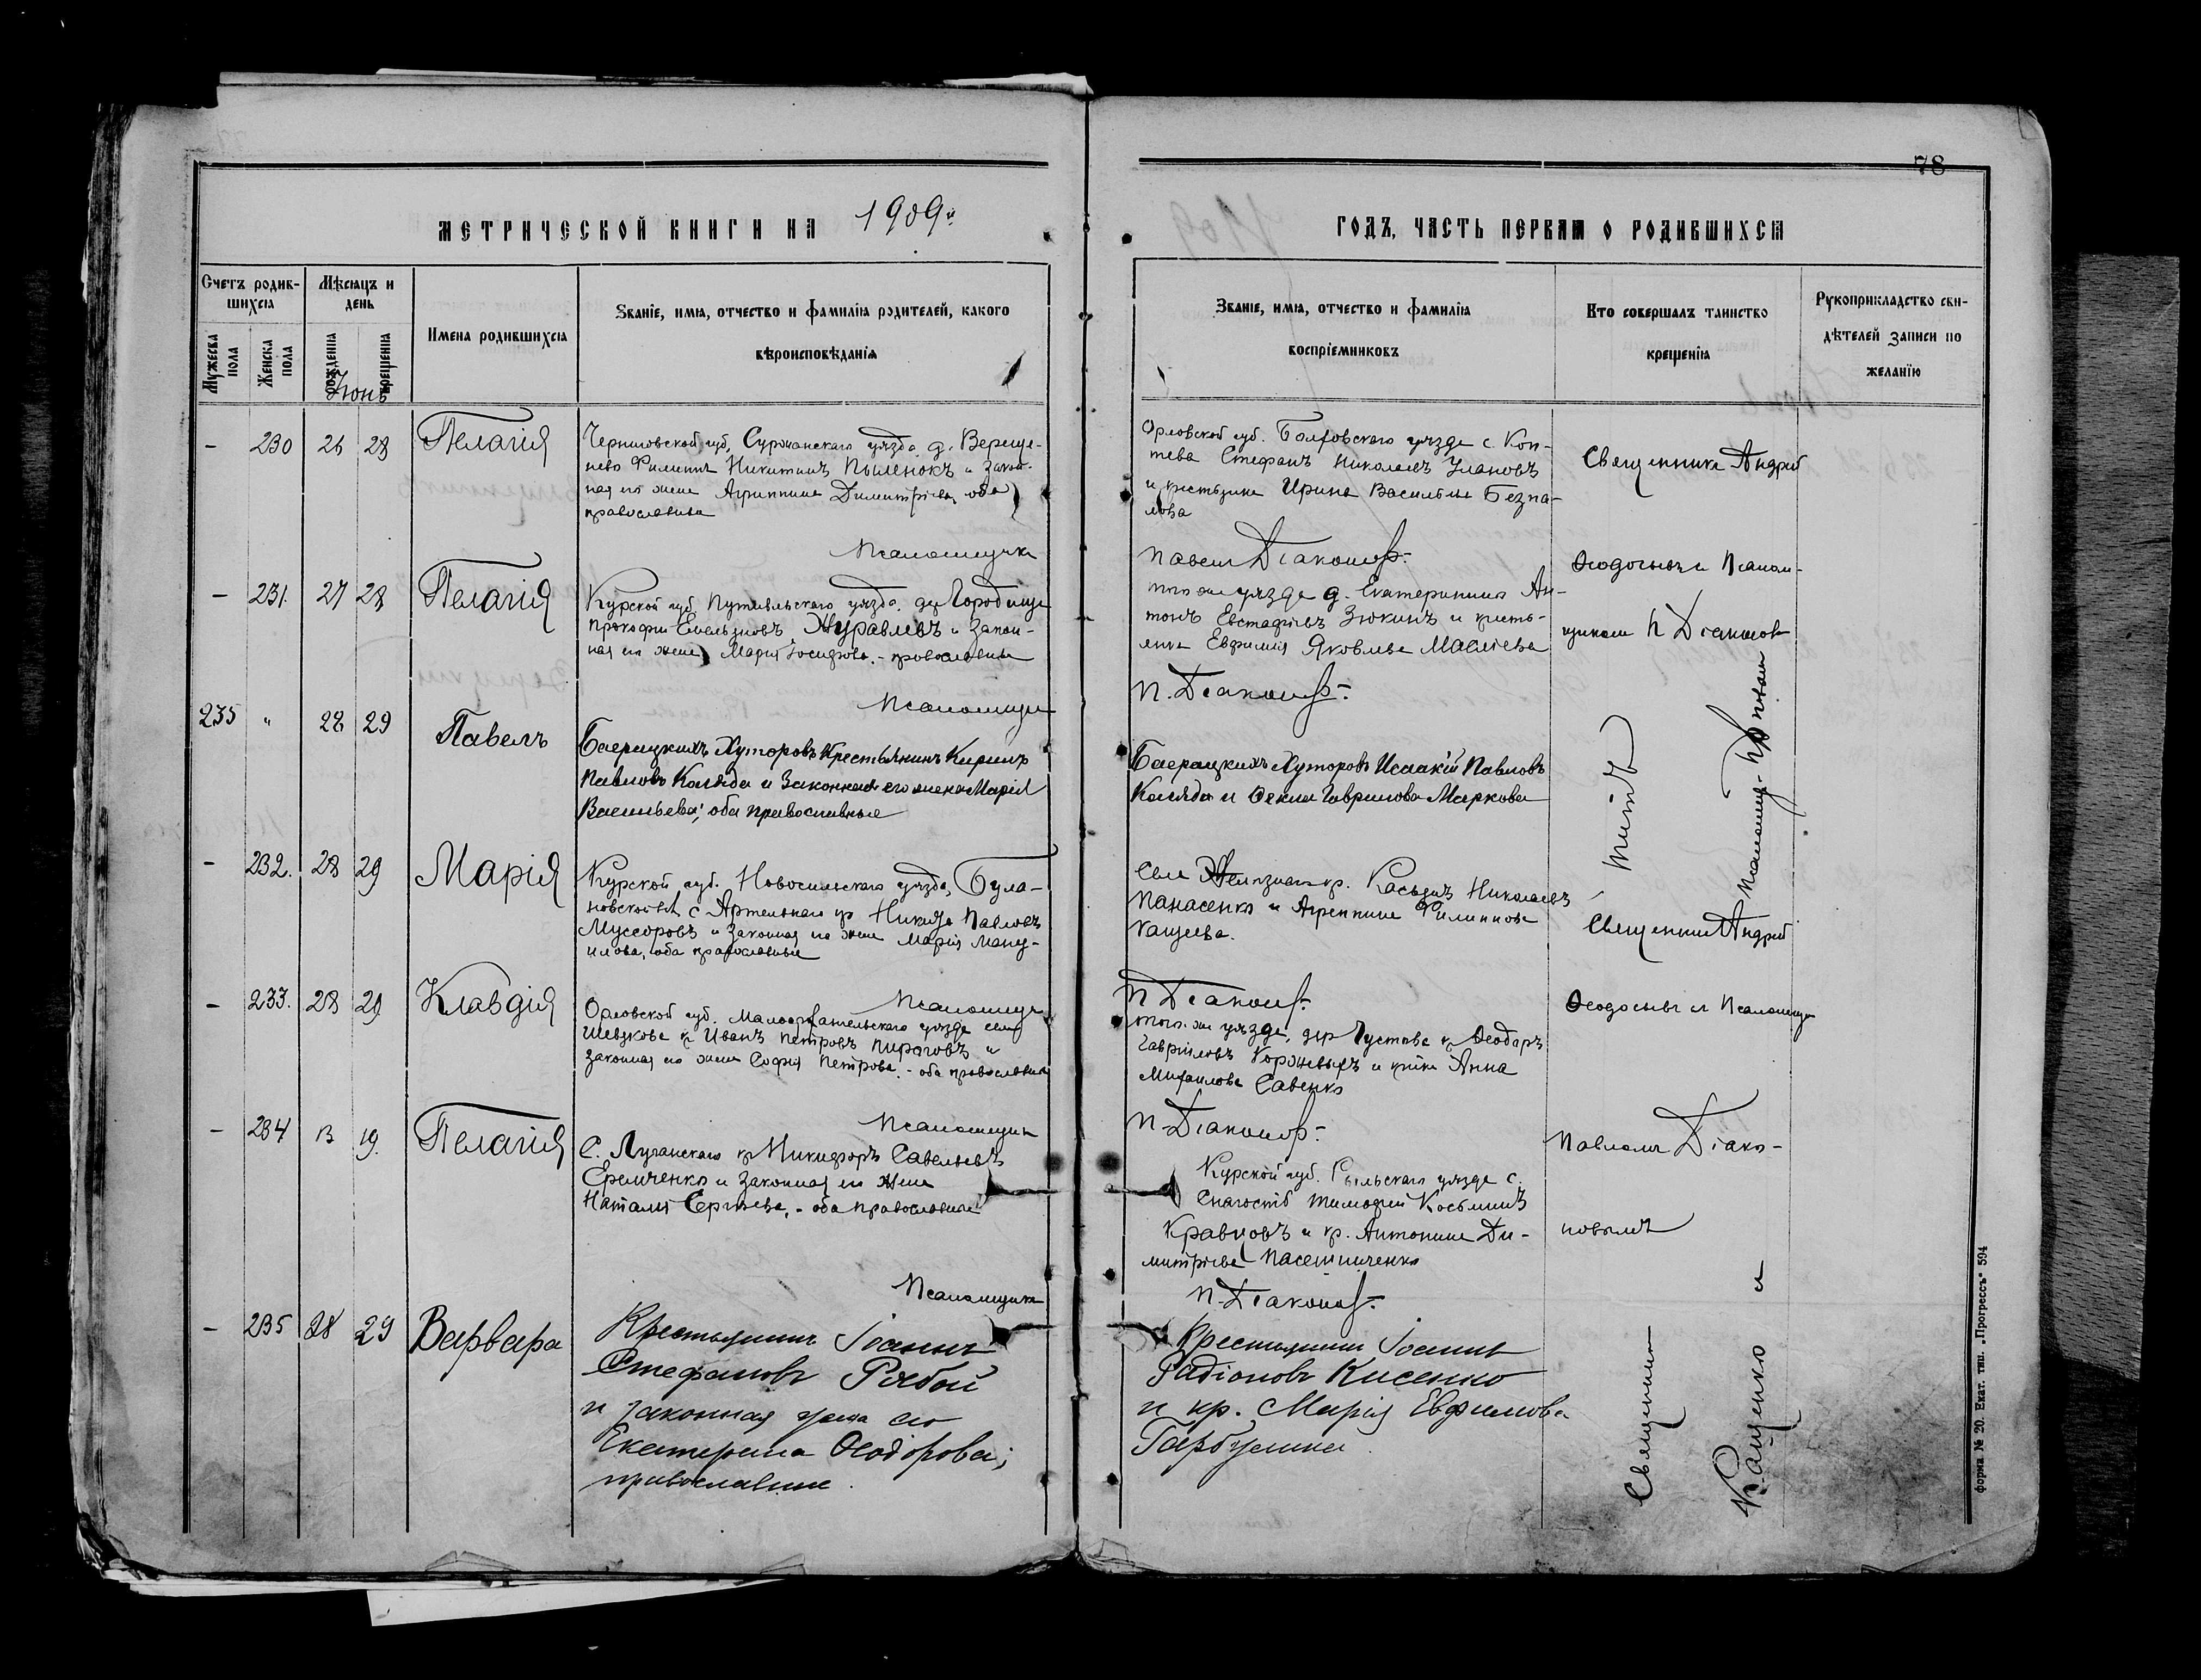 78
МЕТРИЧЕСКОЙ КНИГИ НА 1909й
ГОДЪ, ЧАСТЬ ПЕРВАЯ О РОДИВШИХСЯ
Счетъ родив-
шихся
Мужеска
пола
Женска
пола
Мѣсяцъ и
день
рожденія
крещенія
Имена родившихся
Званіе, имя, отчество и фамилія родителей, какого
вѣроисповѣданія
Званіе, имя, отчество и фамилія
воспріемниковъ
Кто совершалъ таинство
крещенія
Рукоприкладство сви-
дѣтелей записи по
желанію
Іюнь
- 230 26 28 Пелагія
Черниговской губ. Суражанскаго уѣзда д. Вереще-
Филиппъ Никитинъ Пыленокъ и закон-
ная его жена Агриппина Димитріева, оба
православные
Орловской губ. Болховскаго уѣзда с. Коп-
тева Стефанъ Николаевъ Улановъ
и крестьянка Ирина Васильева Безпа-
лова
Священникъ Андрей
Псаломщикъ
Павелъ Діаконовъ
- 231. 27 28 Пелагія
Курской губ. Путивльскаго уѣзда. д. Городища
Прокофій Емельяновъ Журавлевъ и закон-
ная его жена Марія Іосифова. - православные
того же уѣзда д. Екатериника Ан-
тонъ Евстафіевъ Зюкинъ и кресть-
янка Евфимія Яковлева
Ѳеодосьевъ и Псалом-
щикомъ П Діаконов
Псаломщикъ
П. Діаконовъ
235 " 28 29 Павелъ
Баерацкихъ Хуторовъ Крестьянинъ Кирилъ
Павловъ Коляда и Законная его жена Марія
Васильева; оба православные
Баерацкихъ Хуторовъ Исаакій Павловъ
Коляда и Ѳекла Гаврилова Маркова
- 232. 28 29 Марія
Курской губ. Новосильскаго уѣзда, Була-
новской вл с Артельнаго кр Никита Павловъ
Муссоровъ и законная его жена Марія Ману-
илова, оба православные
кр. Касьянъ Николаевъ
Панасенко и Агриппина Филиппова
Кащеева.
Священникъ Андрей
Псаломщикъ
П Діаконовъ
- 233. 28 29 Клавдія
Орловской губ. Малоархангельскаго уѣзда села
кр Иванъ Петровъ Пироговъ и
законная его жена Софія Петрова. - оба православные
того-же уѣзда, дер Густова кр Ѳеодоръ
Гавріиловъ и кр-ка Анна
Михаилова Савенко
Ѳеодосьевъ и Псаломщи
Псаломщикъ
П. Діаконовъ
- 234 13 19. Пелагія
С. Луганскаго кр Никифоръ Савельевъ
Еремченко и законная его жена
Наталія Сергѣева, - оба православные
Курской губ. Рыльскаго уѣзда с.
Снагость Тимофей Косьминъ
Кравцовъ и кр. Антонина Ди-
митріева Пасешниченко
Павломъ Діако-
новымъ
Псаломщикъ
П. Діаконовъ
- 235 28 29 Варвара
Крестьянинъ Іоаннъ
Стефановъ Рябой
и законная жена его
Екатерина Ѳеодорова;
православные.
Крестьянинъ Іоаннъ
Радіоновъ Кисенко
и кр. Марія Евфимова
Гарбузина.
Священникъ
Кащенко и
форма № 20. Екат. тип. „Прогрессъ" 594